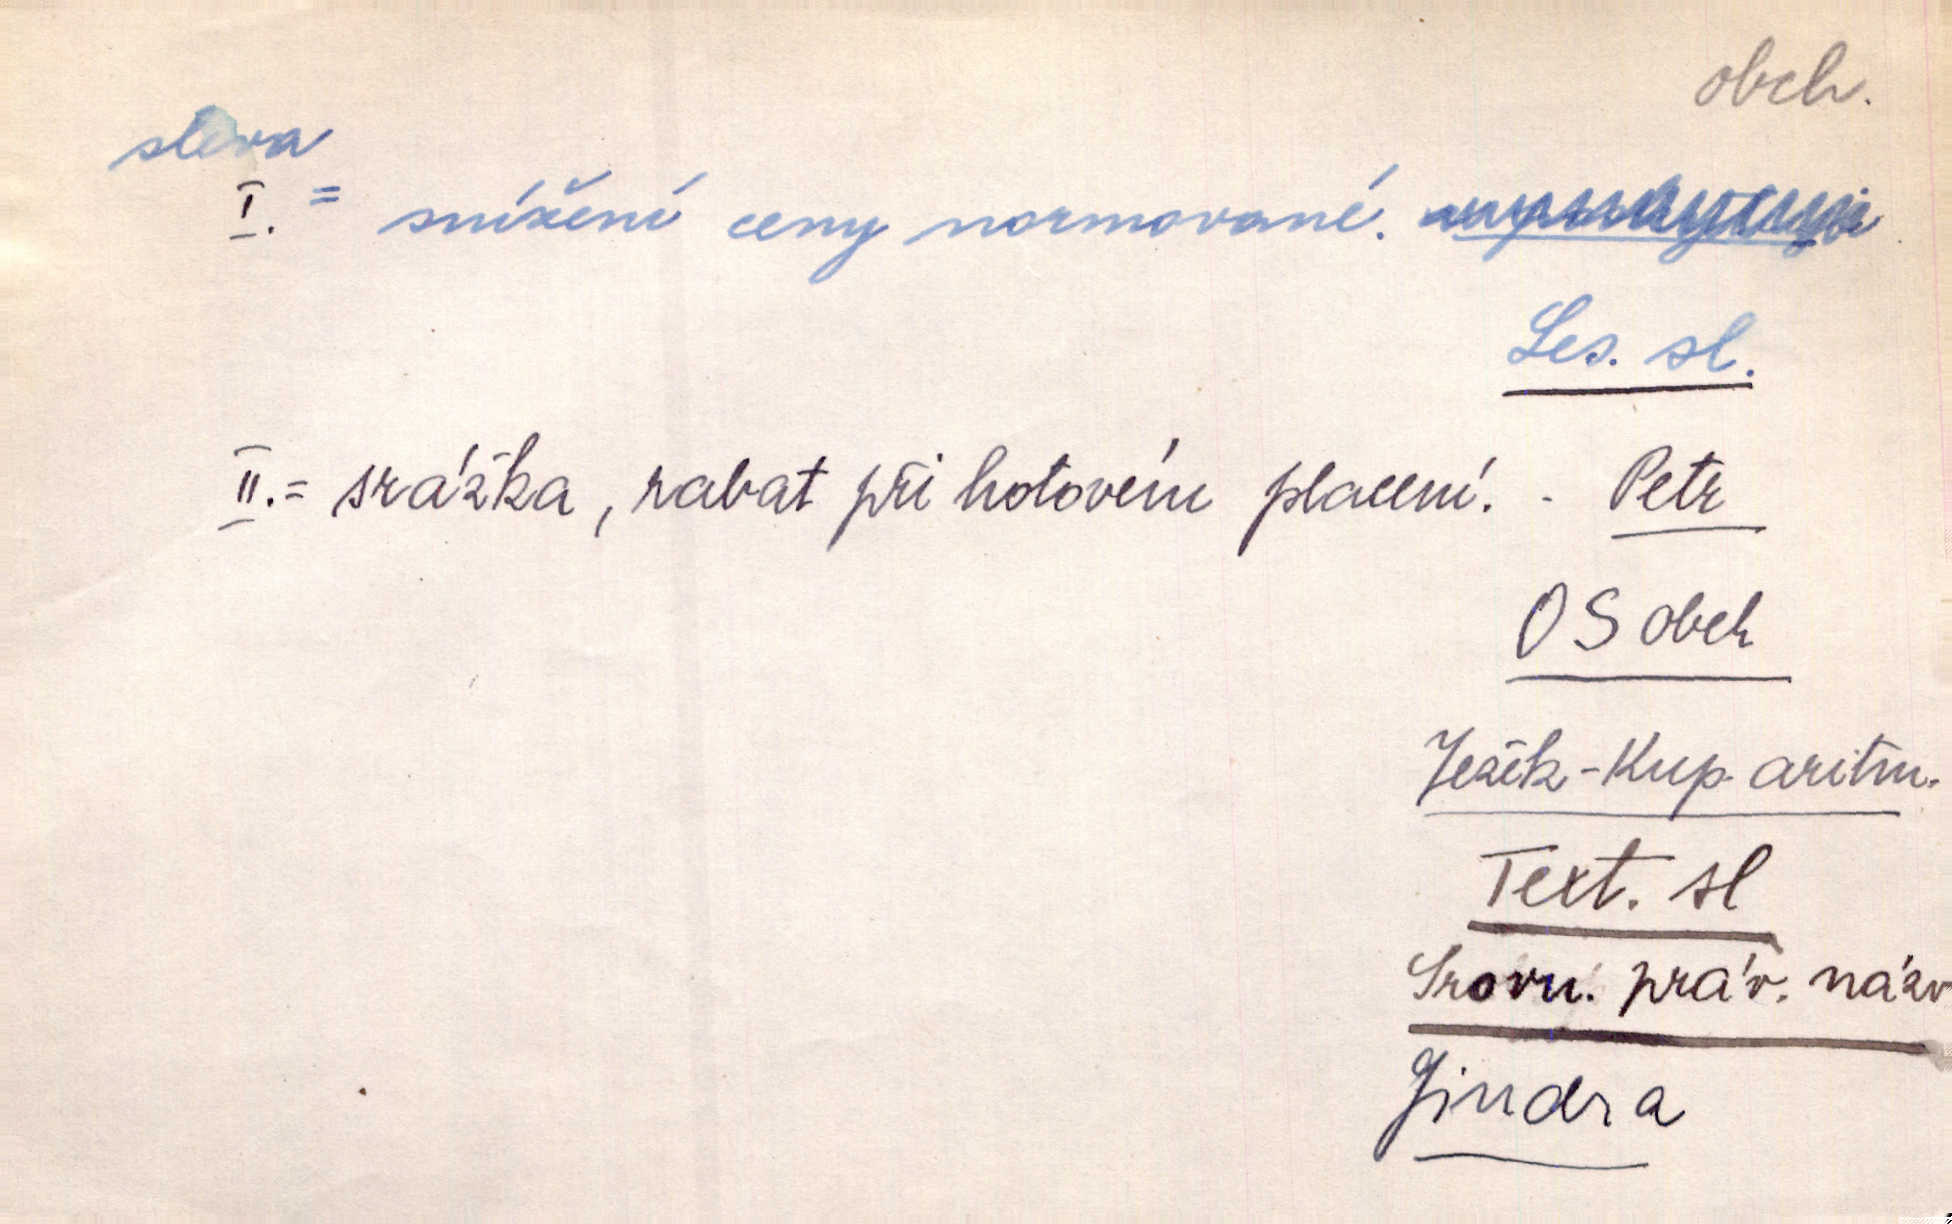 obch.
sleva
I. = snížení ceny normované.
Les. sl.
II. = srážka, rabat při hotovém placení. - Petr
OS obch
Ježek - Kup. aritm.
Text. sl
Srovn. práv. názv
Jindra